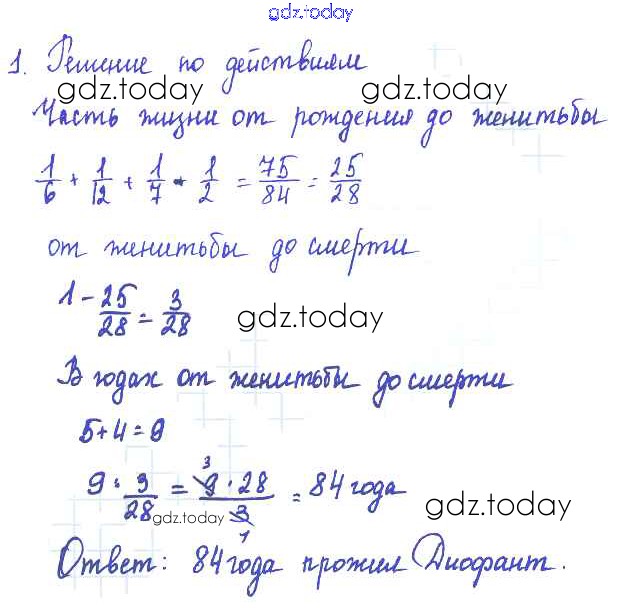 gdz.today
1. Решение по действиям
gdz.today gdz.today
Часть жизни от рождения до женитьбы
1/6 + 1/12 + 1/7 + 1/2 = 75/84 = 25/28
от женитьбы до смерти
1 - 25/28 = 3/28
gdz.today
В годах от женитьбы до смерти
5+4=9
9 : 3/28 = 9·28/3 = 84 года
3
1
gdz.today gdz.today
Ответ: 84 года прожил Диофант.